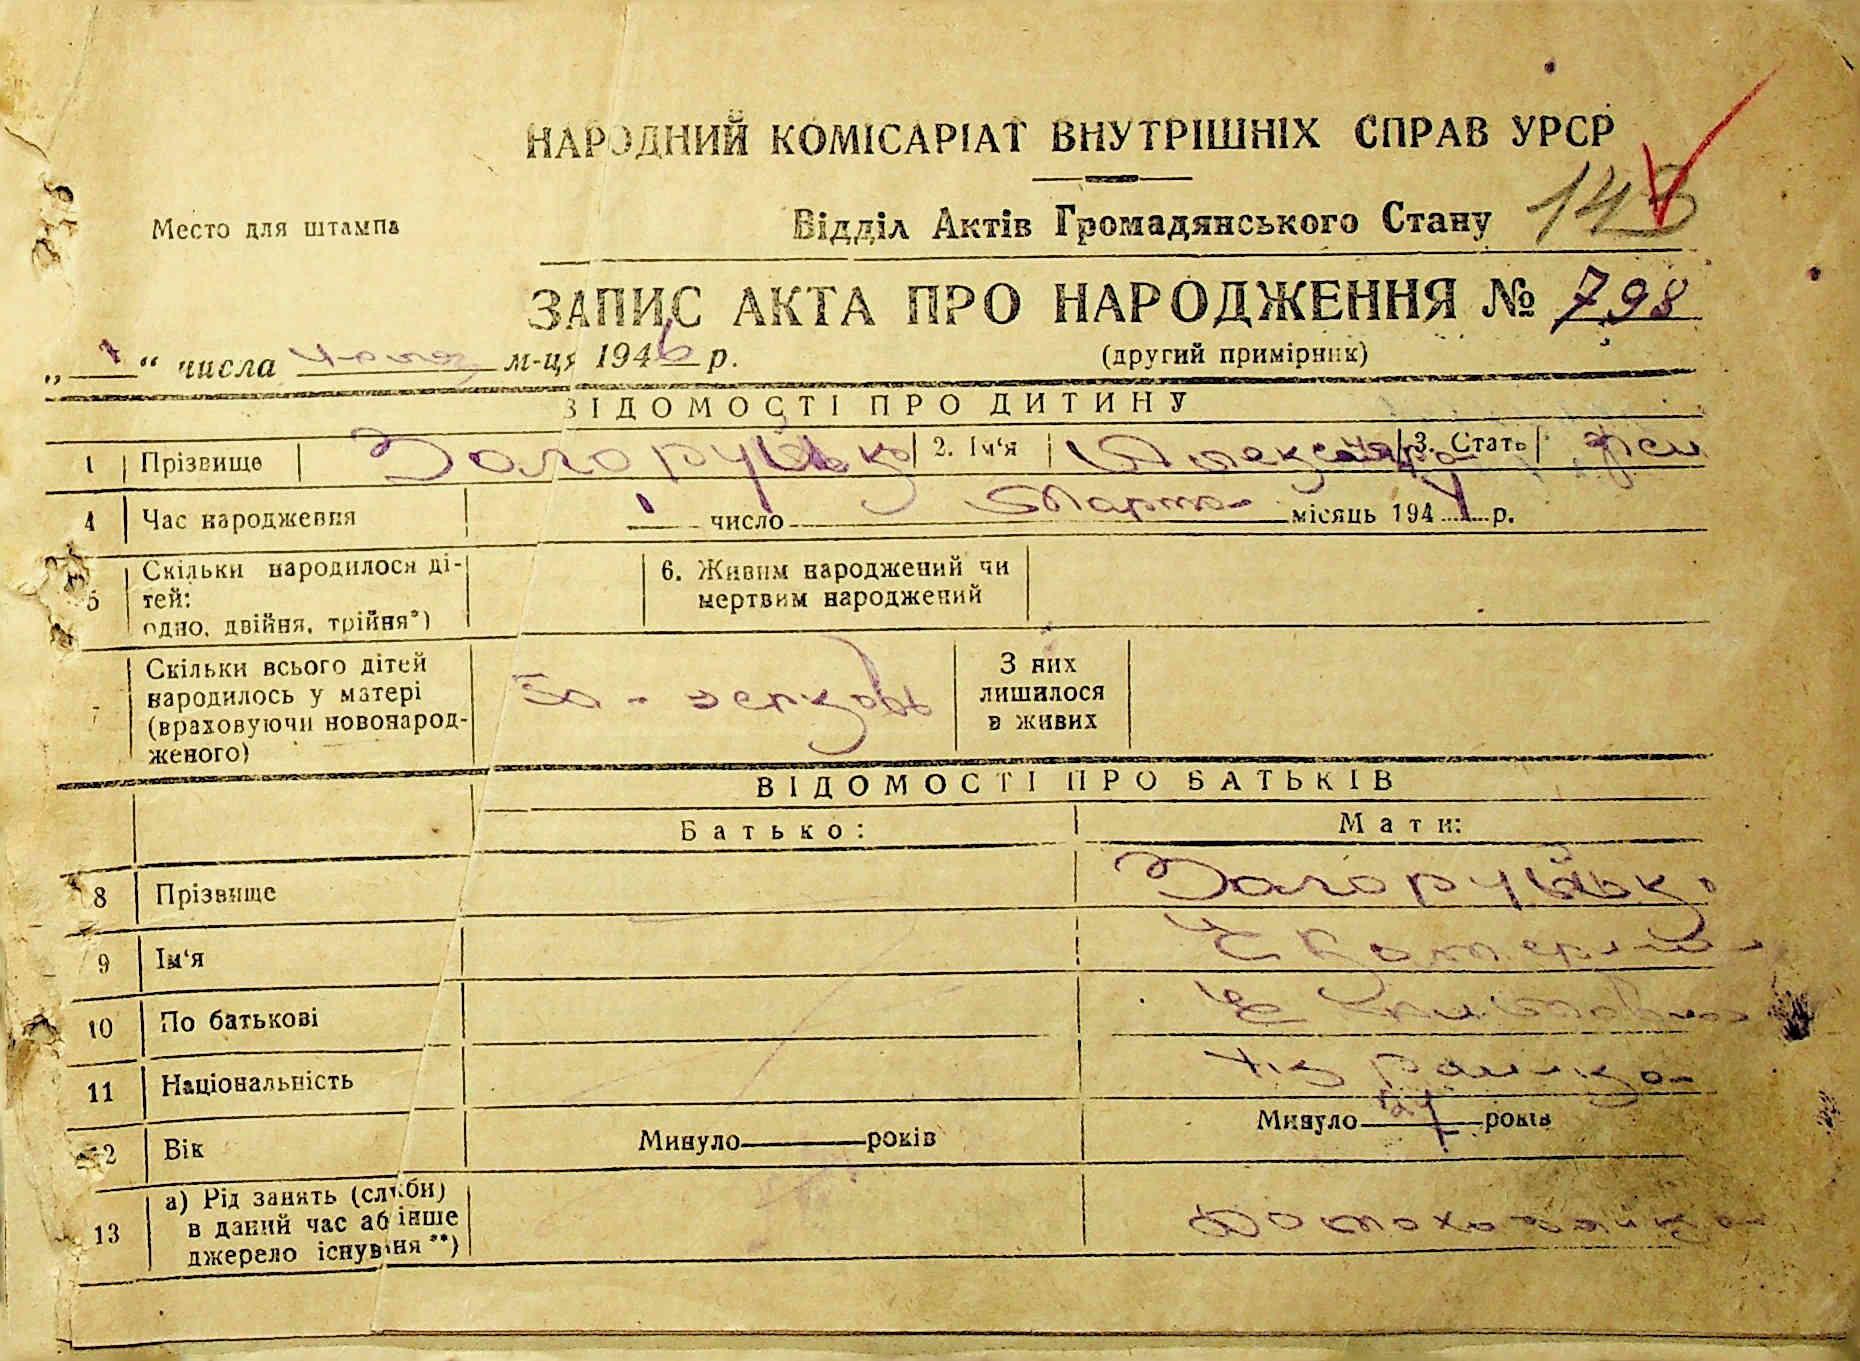 НАРОДНИЙ КОМІСАРІАТ ВНУТРІШНІХ СПРАВ УРСР
Место для штампа
Відділ Актів Громадянського Стану 143
ЗАПИС АКТА ПРО НАРОДЖЕННЯ № 798
(другий примірник)
„ 1 “ числа м-ця 1946 р.
ВІДОМОСТІ ПРО ДИТИНУ
1 Прізвище Загорулько 2. Ім‘я Александра 3. Стать жен
4 Час народження 1 число Марта місяць 194 р.
5 Скільки народилося ді-
тей:
одно, двійня, трійня*)
6. Живим народжений чи
мертвим народжений
Скільки всього дітей
народилось у матері
(враховуючи новонарод-
женого)
З них
лишилося
в живих
ВІДОМОСТІ ПРО БАТЬКІВ
Батько: Мати:
8 Прізвище Загорулько
9 Ім‘я Екатерина
10 По батькові
11 Національність Украинка
12 Вік Минуло років Минуло 24 років
13 а) Рід занять (служби)
в даний час або інше
джерело існування **)
Домохозяйка